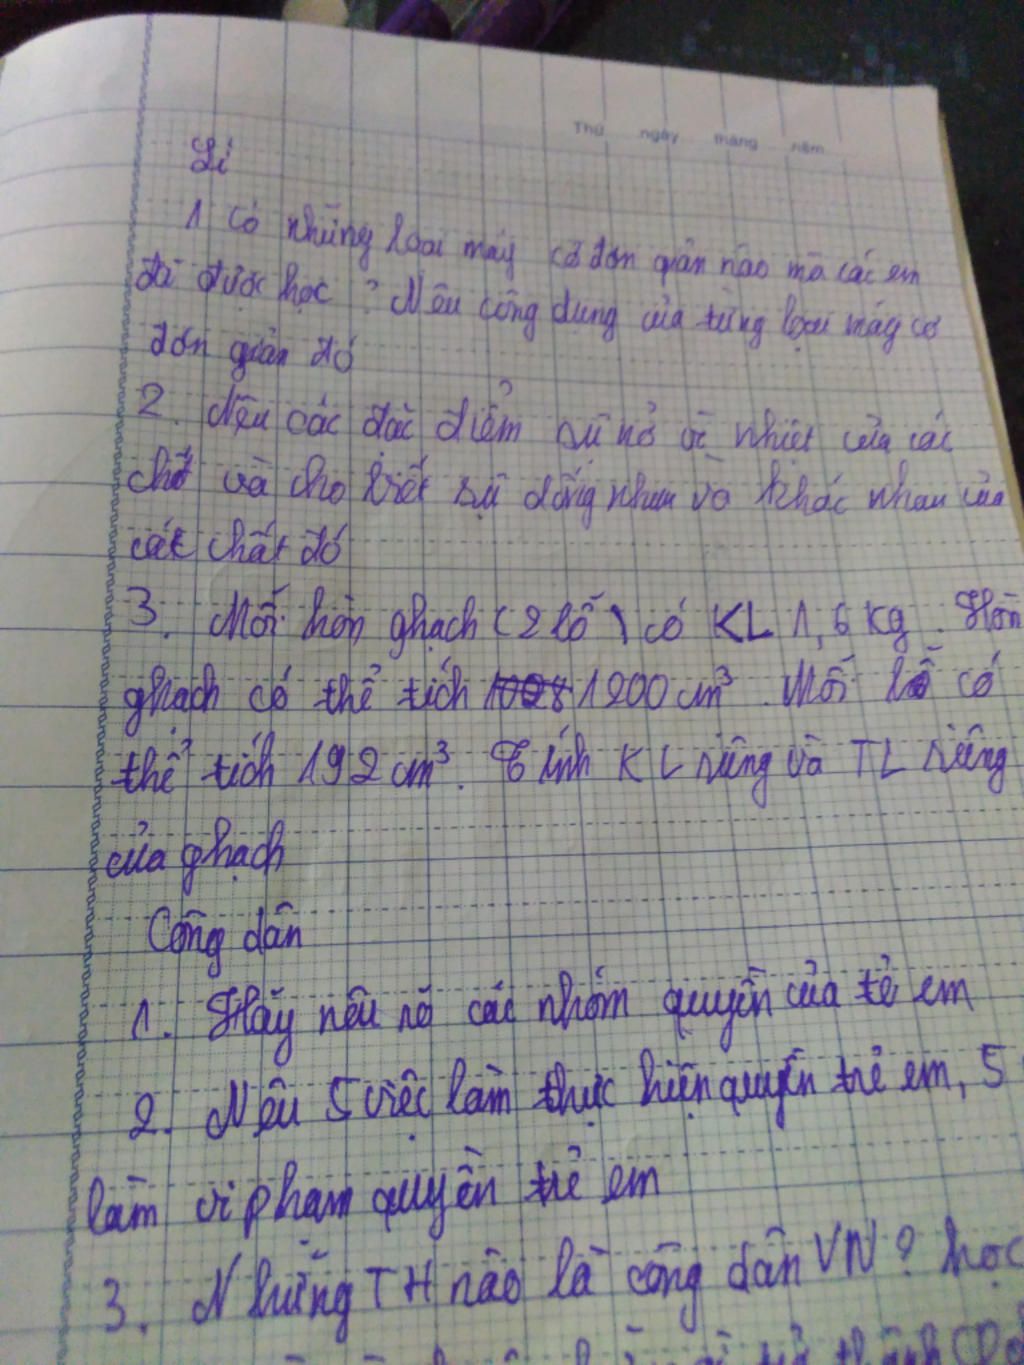 Thứ ngày tháng năm
Lí
1 Có những loại máy cơ đơn giản nào mà các em
đã được học ? Nêu công dụng của từng loại máy cơ
đơn giản đó
2. Nêu các đặc điểm sự nở vì nhiệt của các
chất và cho biết sự giống nhau và khác nhau của
các chất đó
3. Mỗi hòn ghạch (2 lỗ) có KL 1,6 kg. Hòn
ghạch có thể tích 1200 cm³. Mỗi lỗ có
thể tích 192 cm³. Tính KL riêng và TL riêng
của ghạch
Công dân
1. Hãy nêu rõ các nhóm quyền của tẻ em
2. Nêu 5 việc làm thực hiện quyền trẻ em, 5
làm vi phạm quyền trẻ em
3. Những TH nào là công dân VN? học